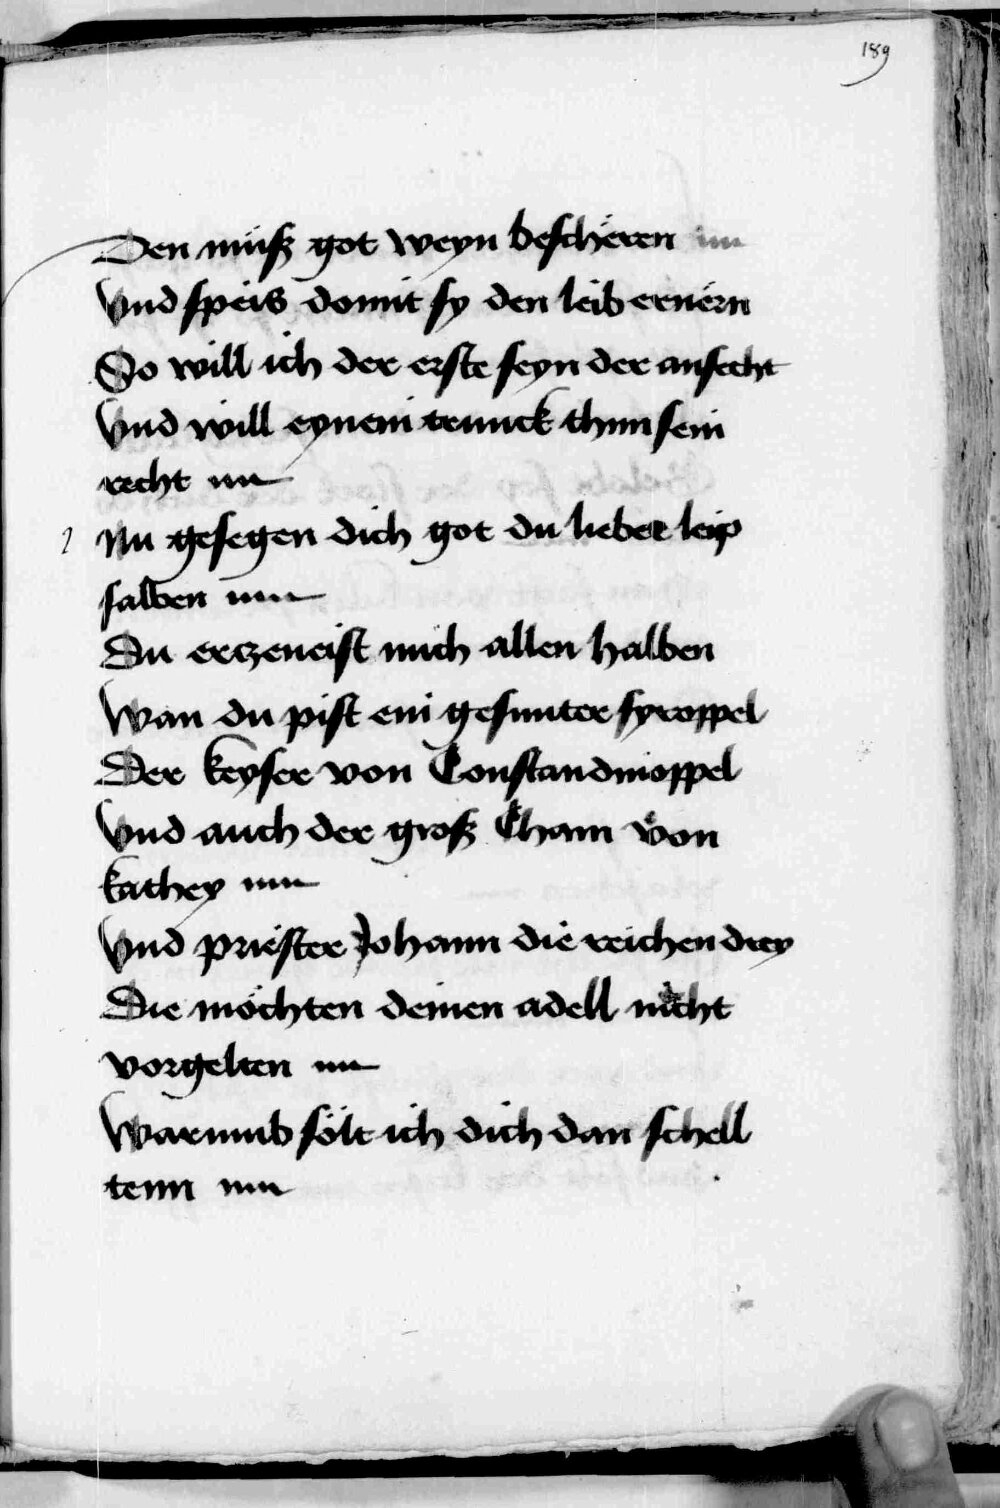 189
Den müsz got weyn beschëren
Vnd speis domit sy den leib ernërn
So will ich der erste seyn der anfecht
Vnd will eynem trunck thun sein
recht
2 Nu gesegen dich got du lieber leip
salben
Du erczeneist mich allen halben
Wan du pist ein gesunter syroppel
Der keyser von Constandinoppel
Vnd auch der grosz Cham von
kathey
Vnd priester Johann die reichen drey
Die möchten deinen adell nicht
vorgelten
Warumb sölt ich dich dan schell
tenn